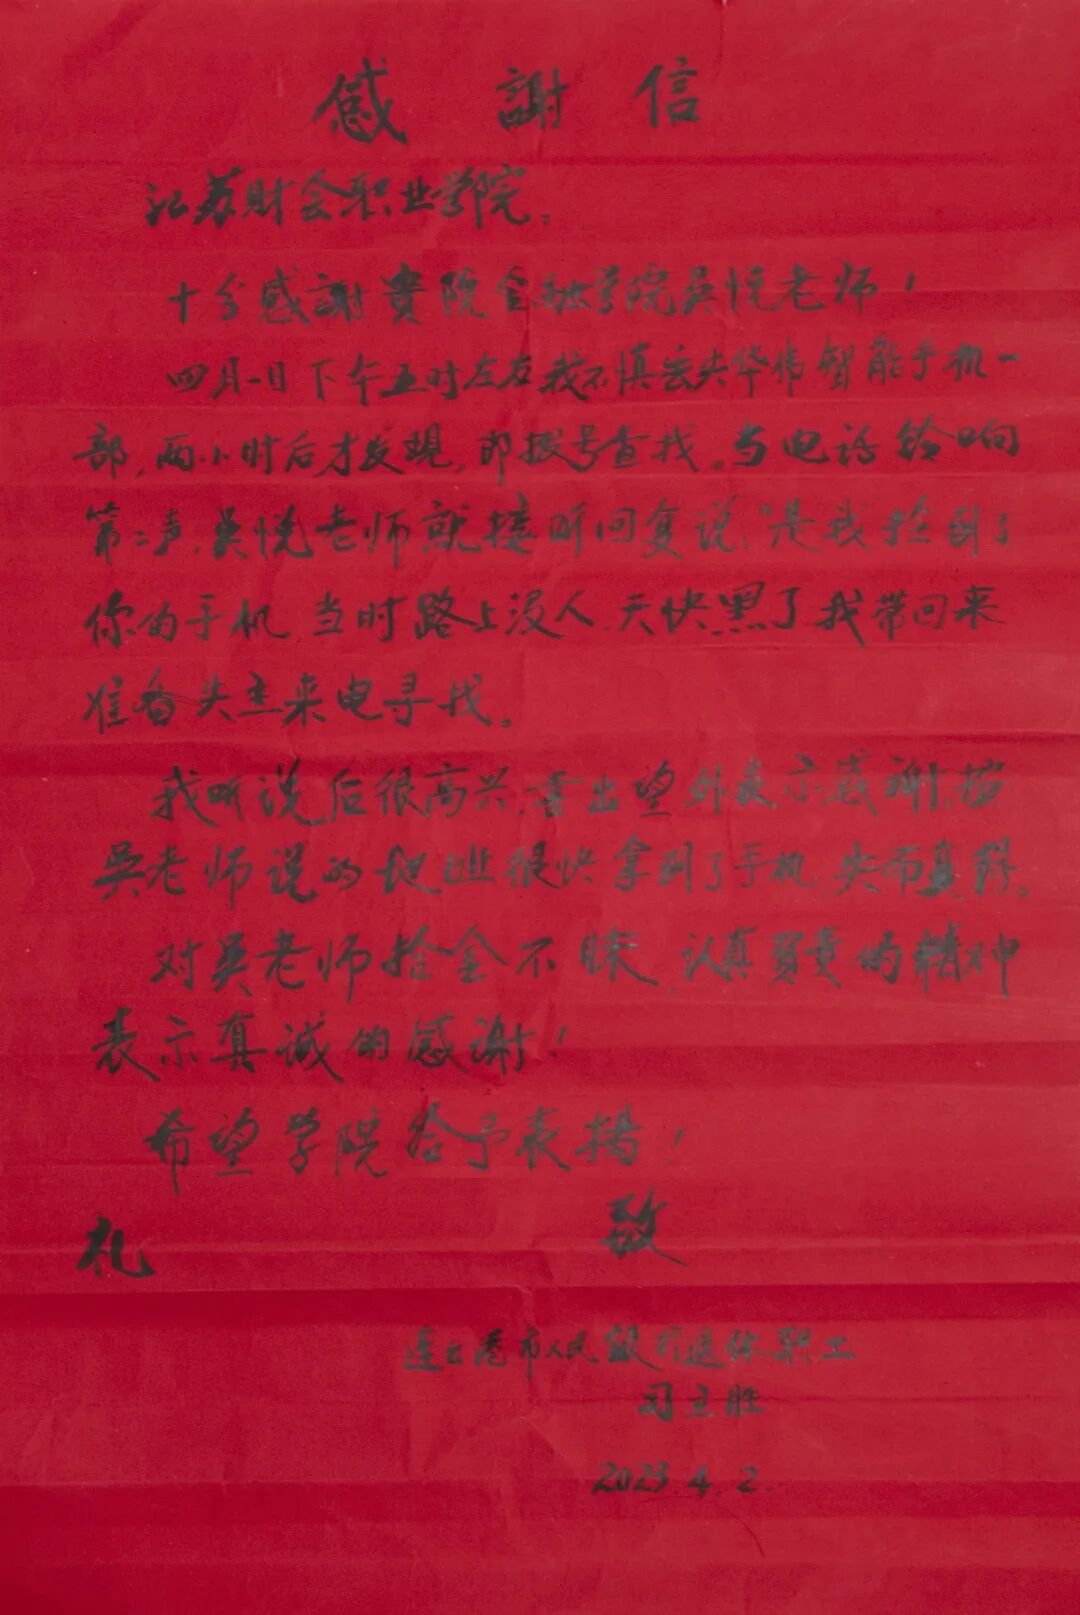 感謝信
江苏财会职业学院:
十分感謝貴院金融学院吴悦老师!
四月一日下午五时左右我不慎丢失华伟智能手机一
部,两小时后才发現,即拨号查找。当电话铃响
第二声,吴悦老师就接听回复说:"是我捡到了
你的手机,当时路上没人,天快黑了我带回来
准备失主来电寻找。
我听说后很高兴,喜出望外表示感謝,按
吴老师说的地址很快拿到了手机,失而复得。
对吴老师拾金不昧,认真負責的精神
表示真诚的感谢!
希望学院给予表揚!
敬
礼
连云港市人民銀行退休职工
司立胜
2023.4.2.